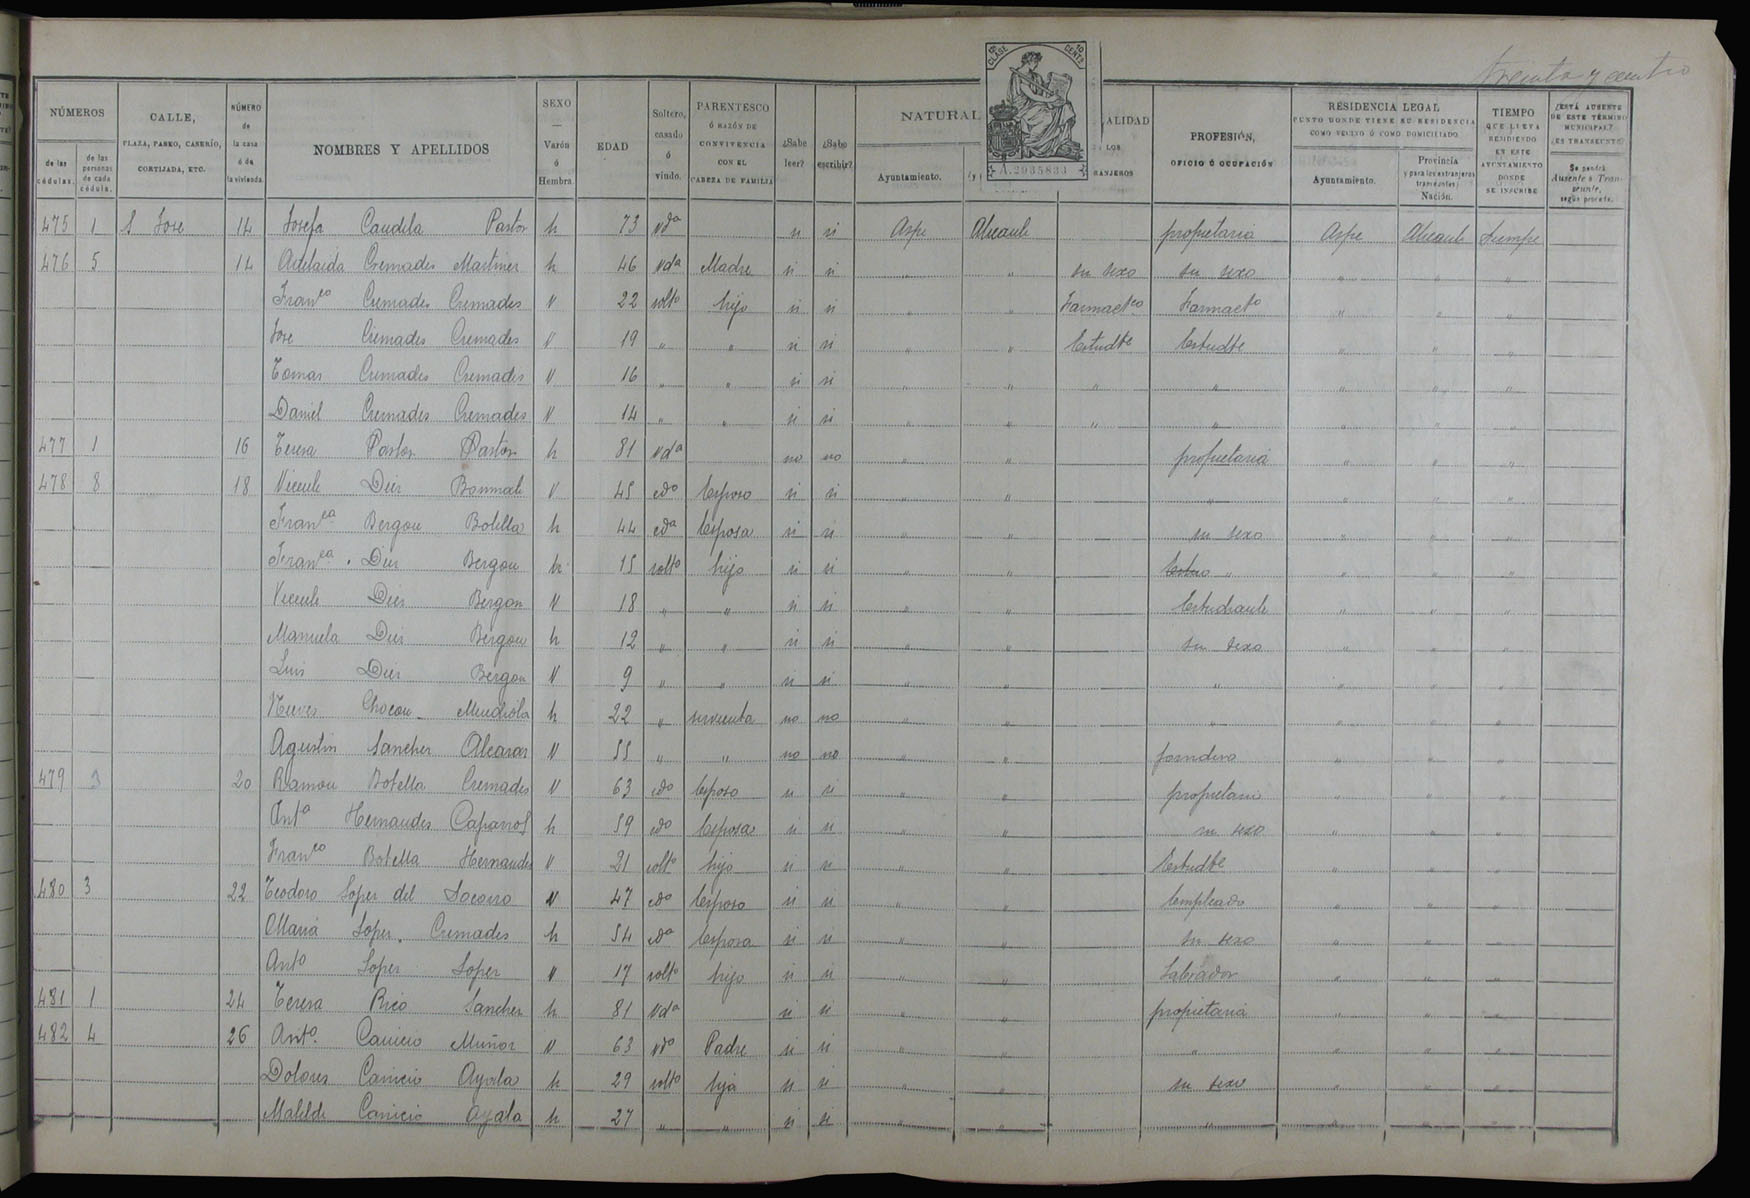 treinta y cuatro
NÚMEROS | CALLE, PLAZA, PASEO, CASERÍO, CORTIJADA, ETC. | NÚMERO de la casa ó de la vivienda. | NOMBRES Y APELLIDOS | SEXO — Varón ó Hembra. | EDAD | Soltero, casado ó viudo. | PARENTESCO Ó RAZÓN DE CONVIVENCIA CON EL CABEZA DE FAMILIA | ¿Sabe leer? | ¿Sabe escribir? | NATURAL | ALIDAD LOS RANJEROS | PROFESIÓN, OFICIO Ó OCUPACIÓN | RESIDENCIA LEGAL PUNTO DONDE TIENE SU RESIDENCIA COMO VECINO Ó COMO DOMICILIADO | TIEMPO QUE LLEVA RESIDIENDO EN ESTE AYUNTAMIENTO DONDE SE INSCRIBE | ¿ESTÁ AUSENTE DE ESTE TÉRMINO MUNICIPAL? ¿ES TRANSEUNTE?
de las cédulas. | de las personas de cada cédula. | Ayuntamiento. | Ayuntamiento. | Provincia y para los extranjeros transeuntes; Nación. | Se pondrá Ausente ó Transeunte, según proceda.
12ª CLASE 10 CENTS
A.2935833
475 | 1 | S Jose | 14 | Josefa Caudela Pastor | h | 73 | Vda | si | si | Aspe | Alicante | propietaria | Aspe | Alicante | Siempre
476 | 5 | 14 | Adelaida Cremades Martinez | h | 46 | Vda | Madre | si | si | " | " | su sexo | su sexo | " | " | "
Franco Cremades Cremades | V | 22 | solto | hijo | si | si | " | " | Farmactco | Farmacto | " | " | "
Jose Cremades Cremades | V | 19 | " | " | si | si | " | " | Estudte | Estudte | " | " | "
Tomas Cremades Cremades | V | 16 | " | " | si | si | " | " | " | " | " | " | "
Daniel Cremades Cremades | V | 14 | " | " | si | si | " | " | " | " | " | " | "
477 | 1 | 16 | Teresa Pastor Pastor | h | 81 | Vda | no | no | " | " | propietaria | " | " | "
478 | 8 | 18 | Vicente Dies Bonmati | V | 45 | cdo | Esposo | si | si | " | " | " | " | " | "
Franca Bergon Botella | h | 44 | cda | Esposa | si | si | " | " | su sexo | " | " | "
Franca Dies Bergon | h | 15 | solto | hijo | si | si | " | " | " | " | " | "
Vicente Dies Bergon | V | 18 | " | " | si | si | " | " | Estudiante | " | " | "
Manuela Dies Bergon | h | 12 | " | " | si | si | " | " | su sexo | " | " | "
Luis Dies Bergon | V | 9 | " | " | si | si | " | " | " | " | " | "
Nieves Mendiola | h | 22 | " | sirvienta | no | no | " | " | " | " | " | "
Agustin Sanchez Alcaraz | V | 55 | " | " | no | no | " | " | " | " | "
479 | 3 | 20 | Ramon Botella Cremades | V | 63 | cdo | Esposo | si | si | " | " | propietario | " | " | "
Anta Hernandes Caparros | h | 59 | cdo | Esposa | si | si | " | " | su sexo | " | " | "
Franco Botella Hernandes | V | 21 | solto | hijo | si | si | " | " | Estudte | " | " | "
480 | 3 | 22 | Teodoro Lopez del Socorro | V | 47 | cdo | Esposo | si | si | " | " | Empleado | " | " | "
Maria Lopez Cremades | h | 54 | cda | Esposa | si | si | " | " | su sexo | " | " | "
Anto Lopez Lopez | V | 17 | solto | hijo | si | si | " | " | Labrador | " | " | "
481 | 1 | 24 | Teresa Rico Sanchez | h | 81 | Vda | si | si | " | " | propietaria | " | " | "
482 | 4 | 26 | Anto Cañicio Muñoz | V | 63 | Vdo | Padre | si | si | " | " | " | " | " | "
Dolores Cañicio Ayala | h | 29 | solto | hija | si | si | " | " | su sexo | " | " | "
Matilde Cañicio Ayala | h | 27 | " | " | si | si | " | " | " | " | " | "